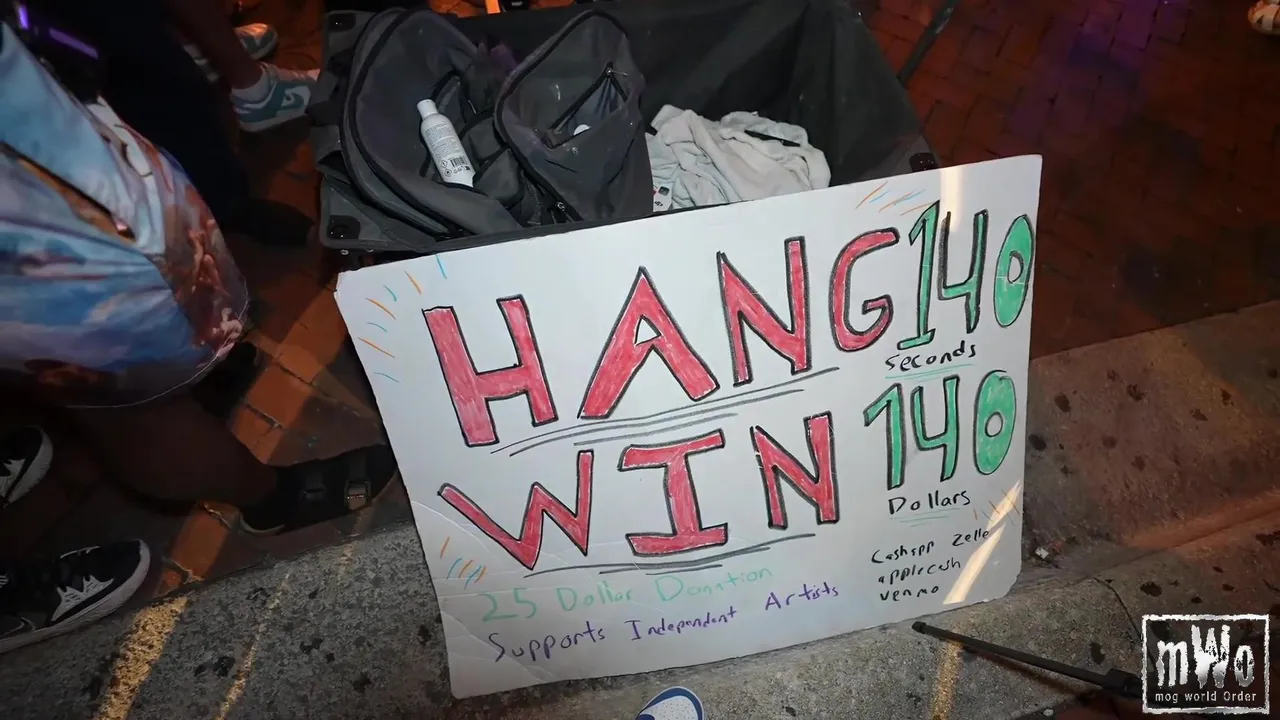 HANG 140
seconds
WIN 140
Dollars
Cashapp Zelle
applecash
venmo
25 Dollar Donation
Supports Independent Artists
mWo
mog world Order